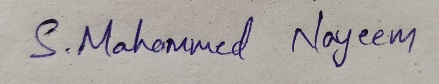 S. Mahammed Nayeem